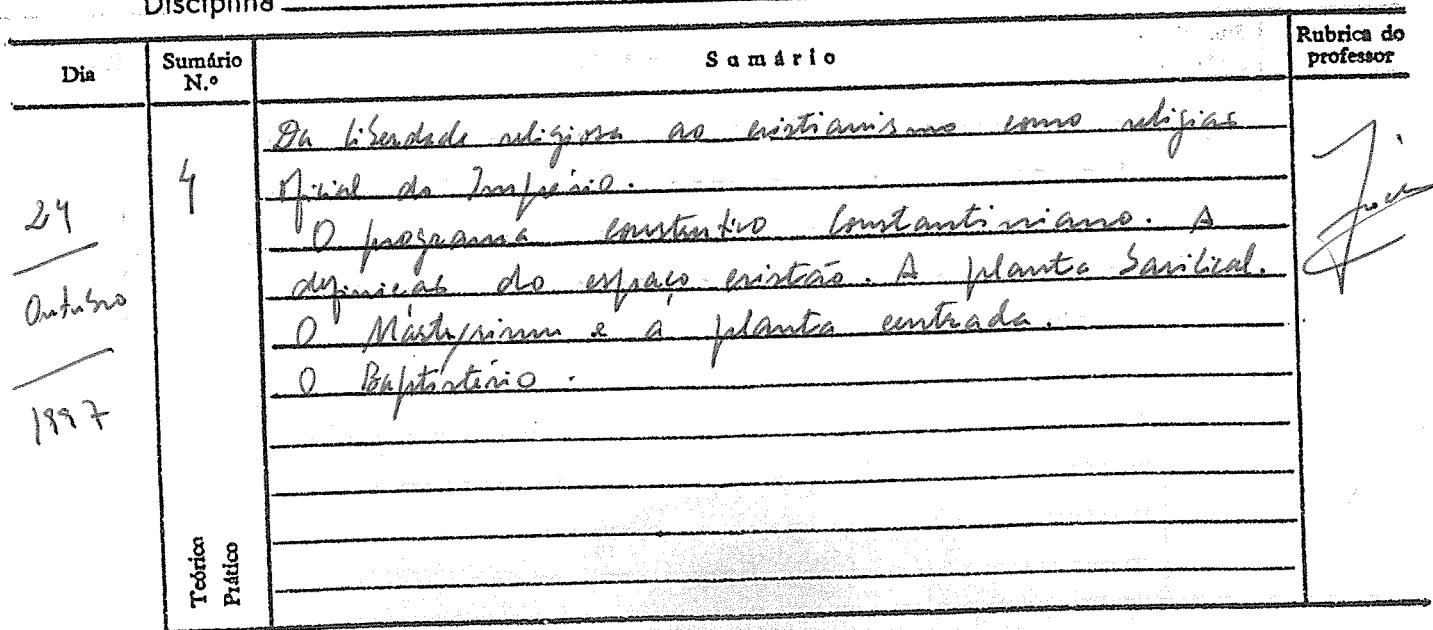 Disciplina
Dia
Sumário N.º
Sumário
Rubrica do professor
24
Outubro
1997
4
Da liberdade religiosa ao cristianismo como religião
oficial do Império.
O programa construtivo Constantiniano. A
definição do espaço cristão. A planta basilical.
O Mártyrium e a planta centrada.
O Baptistério.
Teórico
Prático